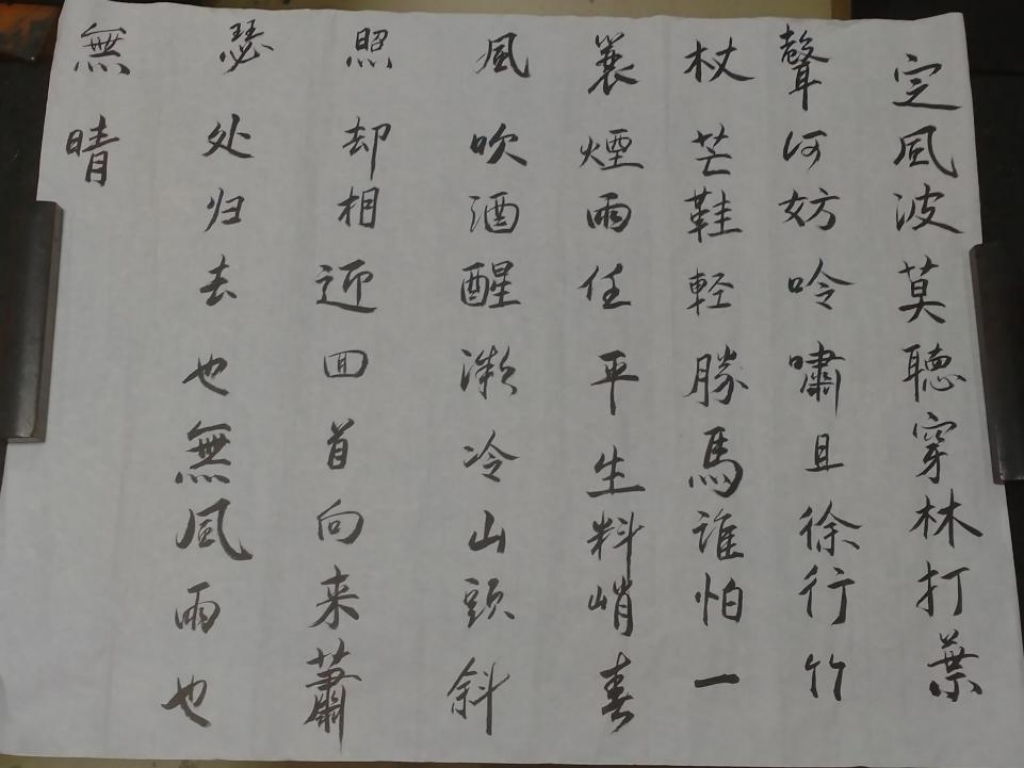 定风波莫聽穿林打葉
聲何妨吟嘯且徐行竹
杖芒鞋軽勝馬誰怕一
蓑煙雨任平生料峭春
風吹酒醒微冷山頭斜
照却相迎回首向来蕭
瑟处归去也無風雨也
無晴